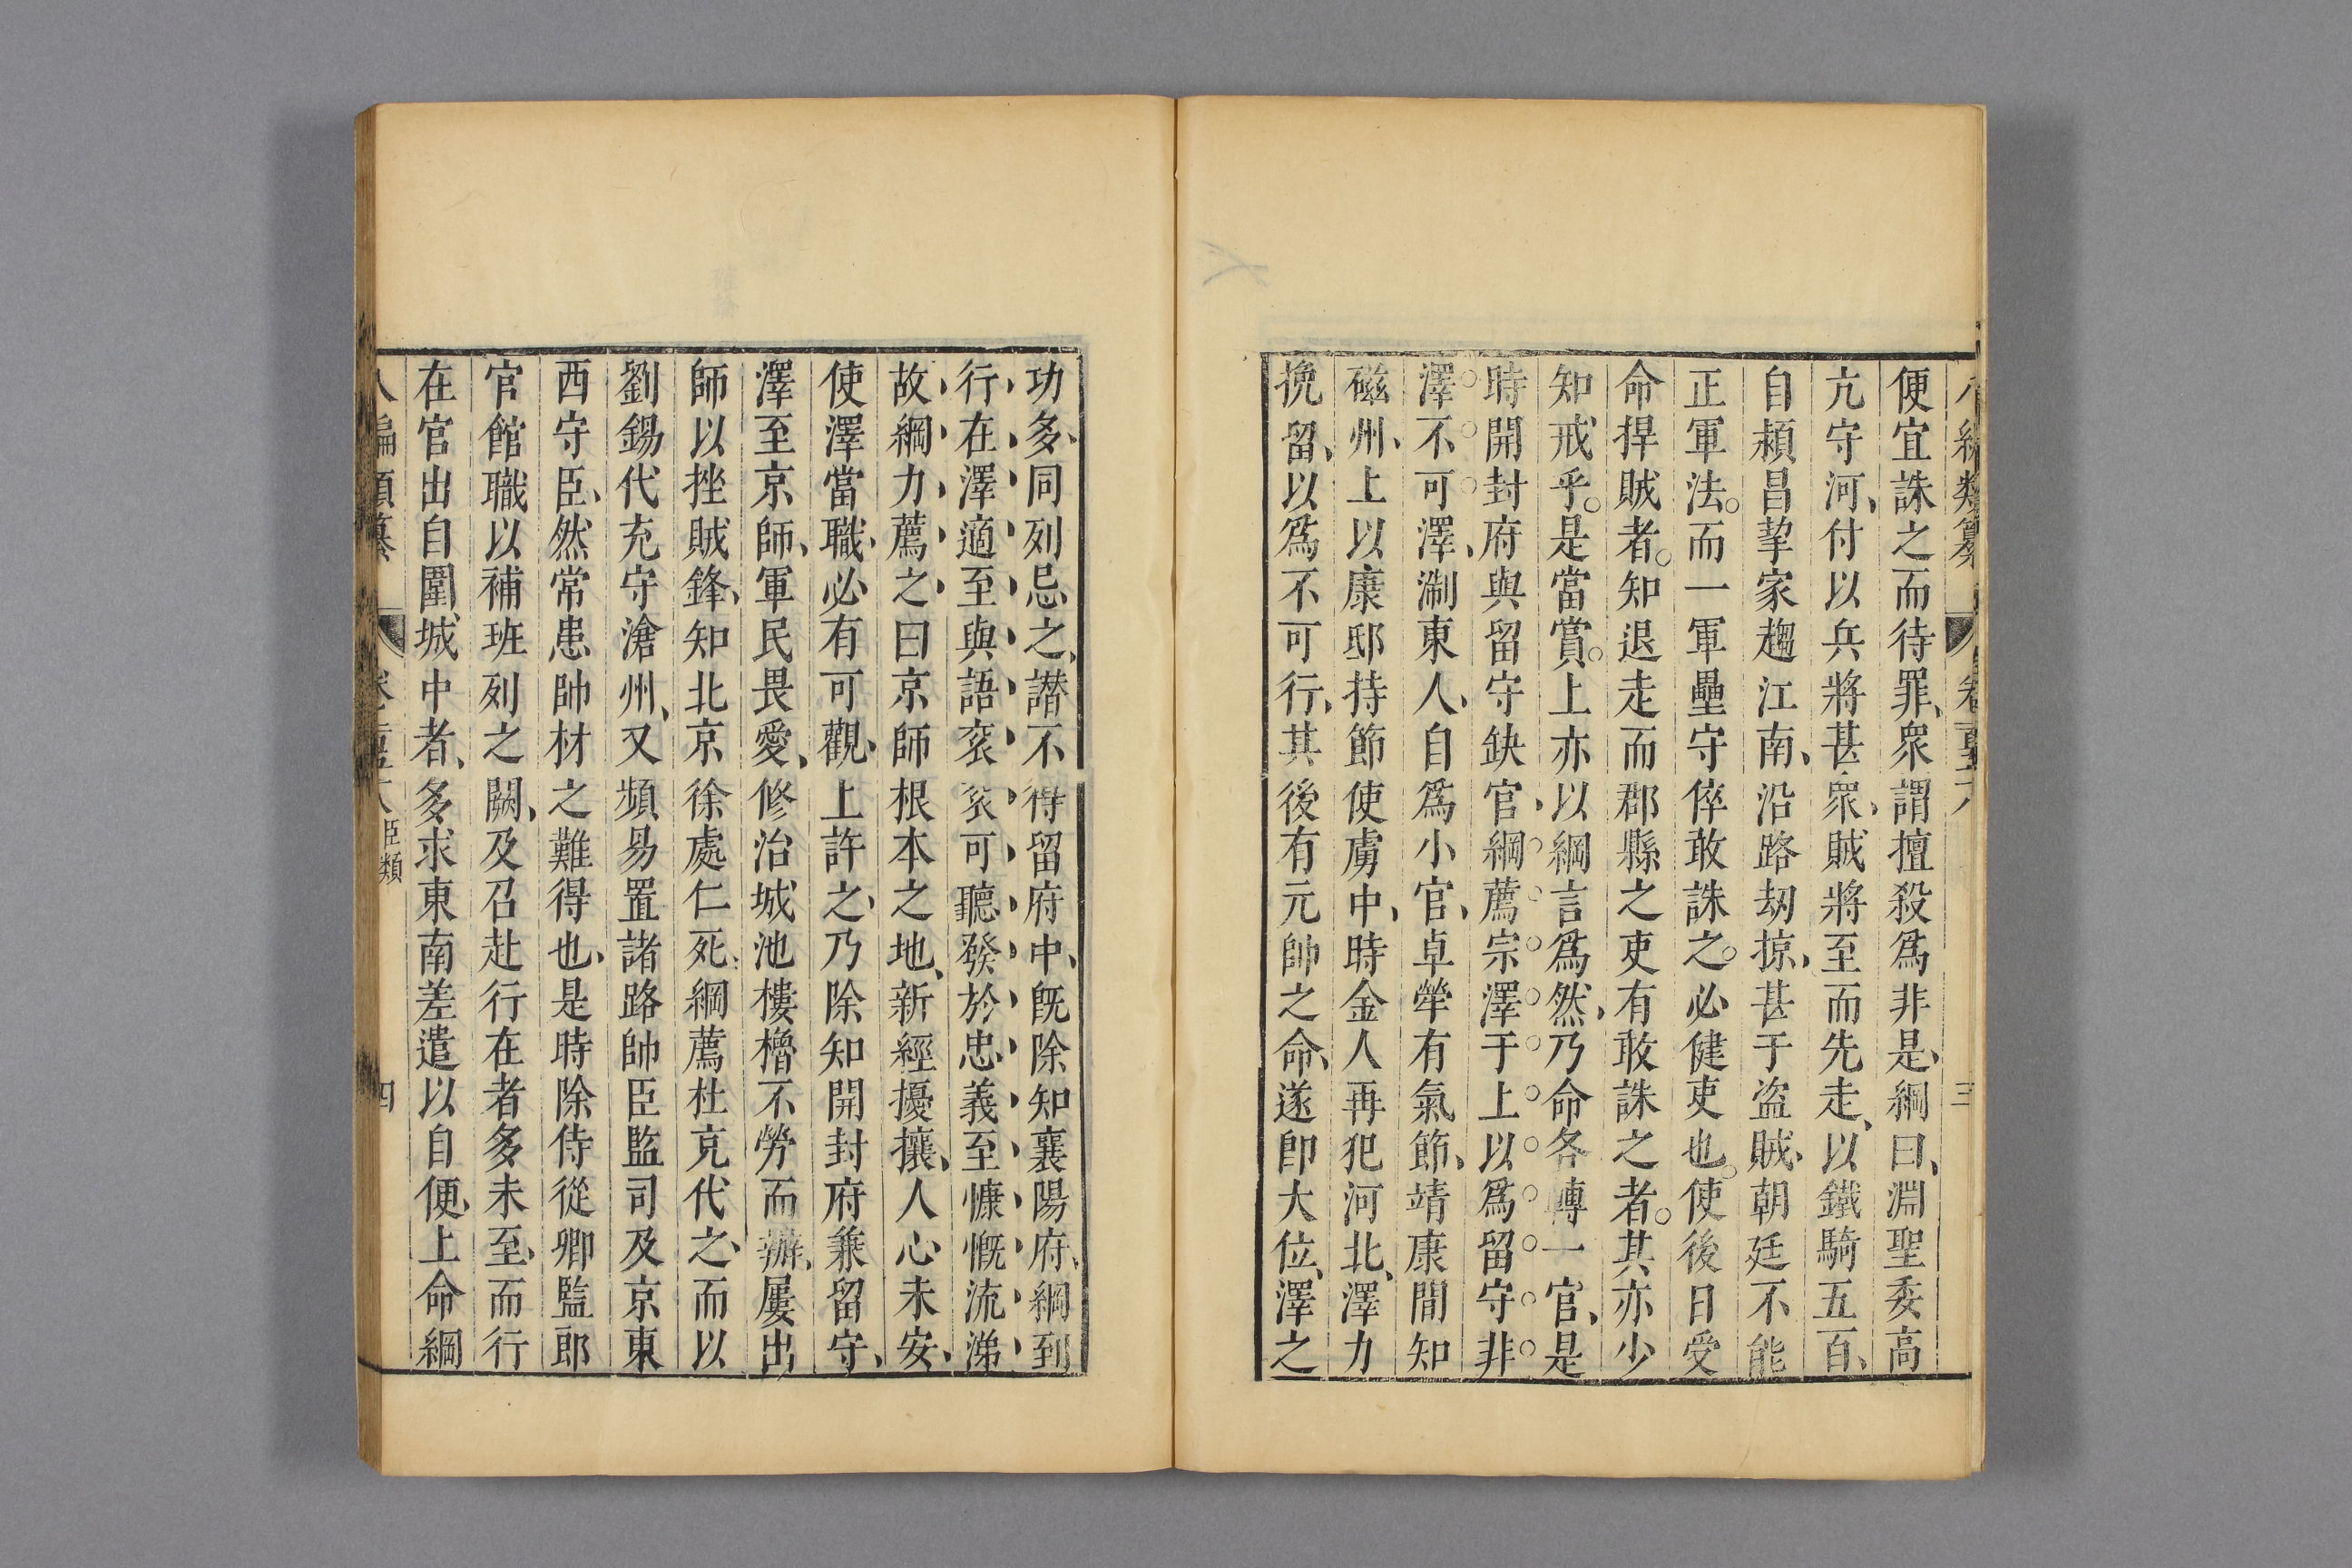 八編類纂 卷一百五十八 三
便宜誅之而待罪、衆謂擅殺爲非是、綱曰、淵聖委高
亢守河、付以兵將甚衆、賊將至而先走、以鐵騎五百、
自潁昌挈家趨江南、沿路刼掠、甚于盜賊、朝廷不能
正軍法。而一軍壘守倅敢誅之。必健吏也。使後日受
命捍賊者。知退走而郡縣之吏有敢誅之者。其亦少
知戒乎。是當賞。上亦以綱言爲然、乃命各轉一官、是
時開封府與留守缺官、綱薦宗澤于上以爲留守非
澤不可澤、淛東人、自爲小官、卓犖有氣節、靖康間知
磁州、上以康邸持節使虜中、時金人再犯河北、澤力
挽留、以爲不可行、其後有元帥之命、遂卽大位、澤之
功多、同列忌之、譖不得留府中、旣除知襄陽府、綱到
行在澤適至與語衮衮可聽發於忠義至慷慨流涕
故綱力薦之曰京師根本之地、新經擾攘、人心未安、
使澤當職、必有可觀、上許之、乃除知開封府兼留守、
澤至京師、軍民畏愛、修治城池樓櫓不勞而辦、屢出
師以挫賊鋒、知北京徐處仁死、綱薦杜充代之、而以
劉錫代充守滄州、又頻易置諸路帥臣監司及京東
西守臣、然常患帥材之難得也、是時除侍從卿監郎
官館職以補班列之闕、及召赴行在者多未至、而行
在官出自圍城中者、多求東南差遣以自便、上命綱
八編類纂 卷一百五十八 臣類 四